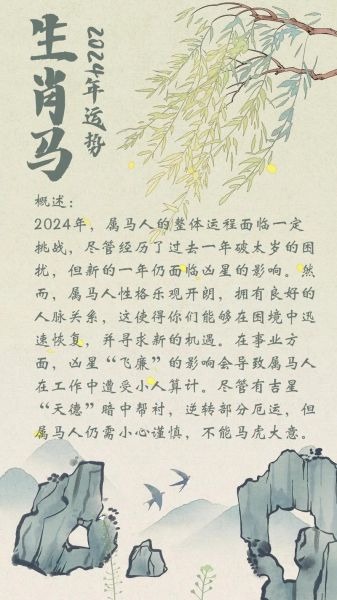 生肖马
2024年运势
概述：
2024年，属马人的整体运程面临一定
挑战，尽管经历了过去一年破太岁的困
扰，但新的一年仍面临凶星的影响。然
而，属马人性格乐观开朗，拥有良好的
人脉关系，这使得你们能够在困境中迅
速恢复，并寻求新的机遇。在事业方
面，凶星“飞廉”的影响会导致属马人
在工作中遭受小人算计。尽管有吉星
“天德”暗中帮衬，逆转部分厄运，但
属马人仍需小心谨慎，不能马虎大意。